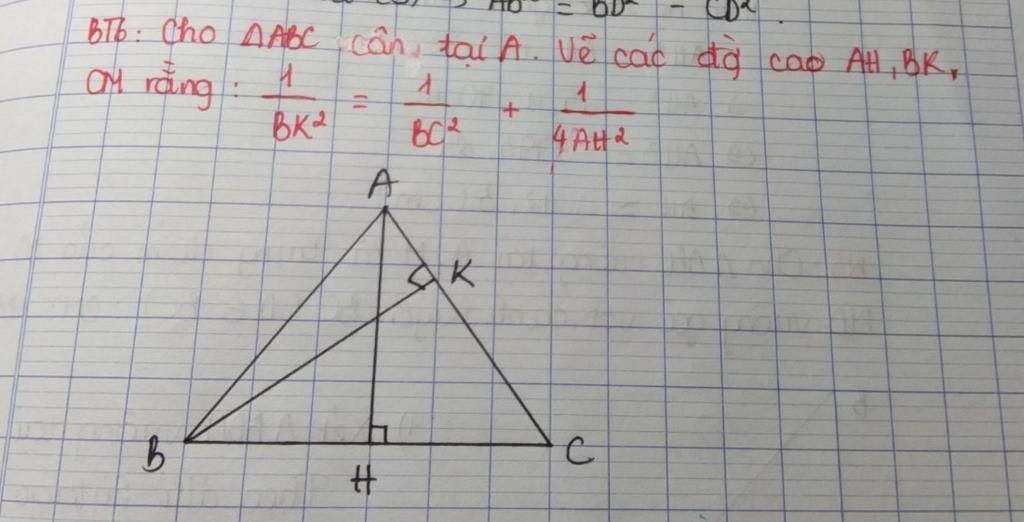 = BD² - CD².
BT6: Cho ΔABC cân tại A. Vẽ các đg̀ cao AH, BK,
CM rằng: 1/BK² = 1/BC² + 1/4AH²
A
K
B
C
H